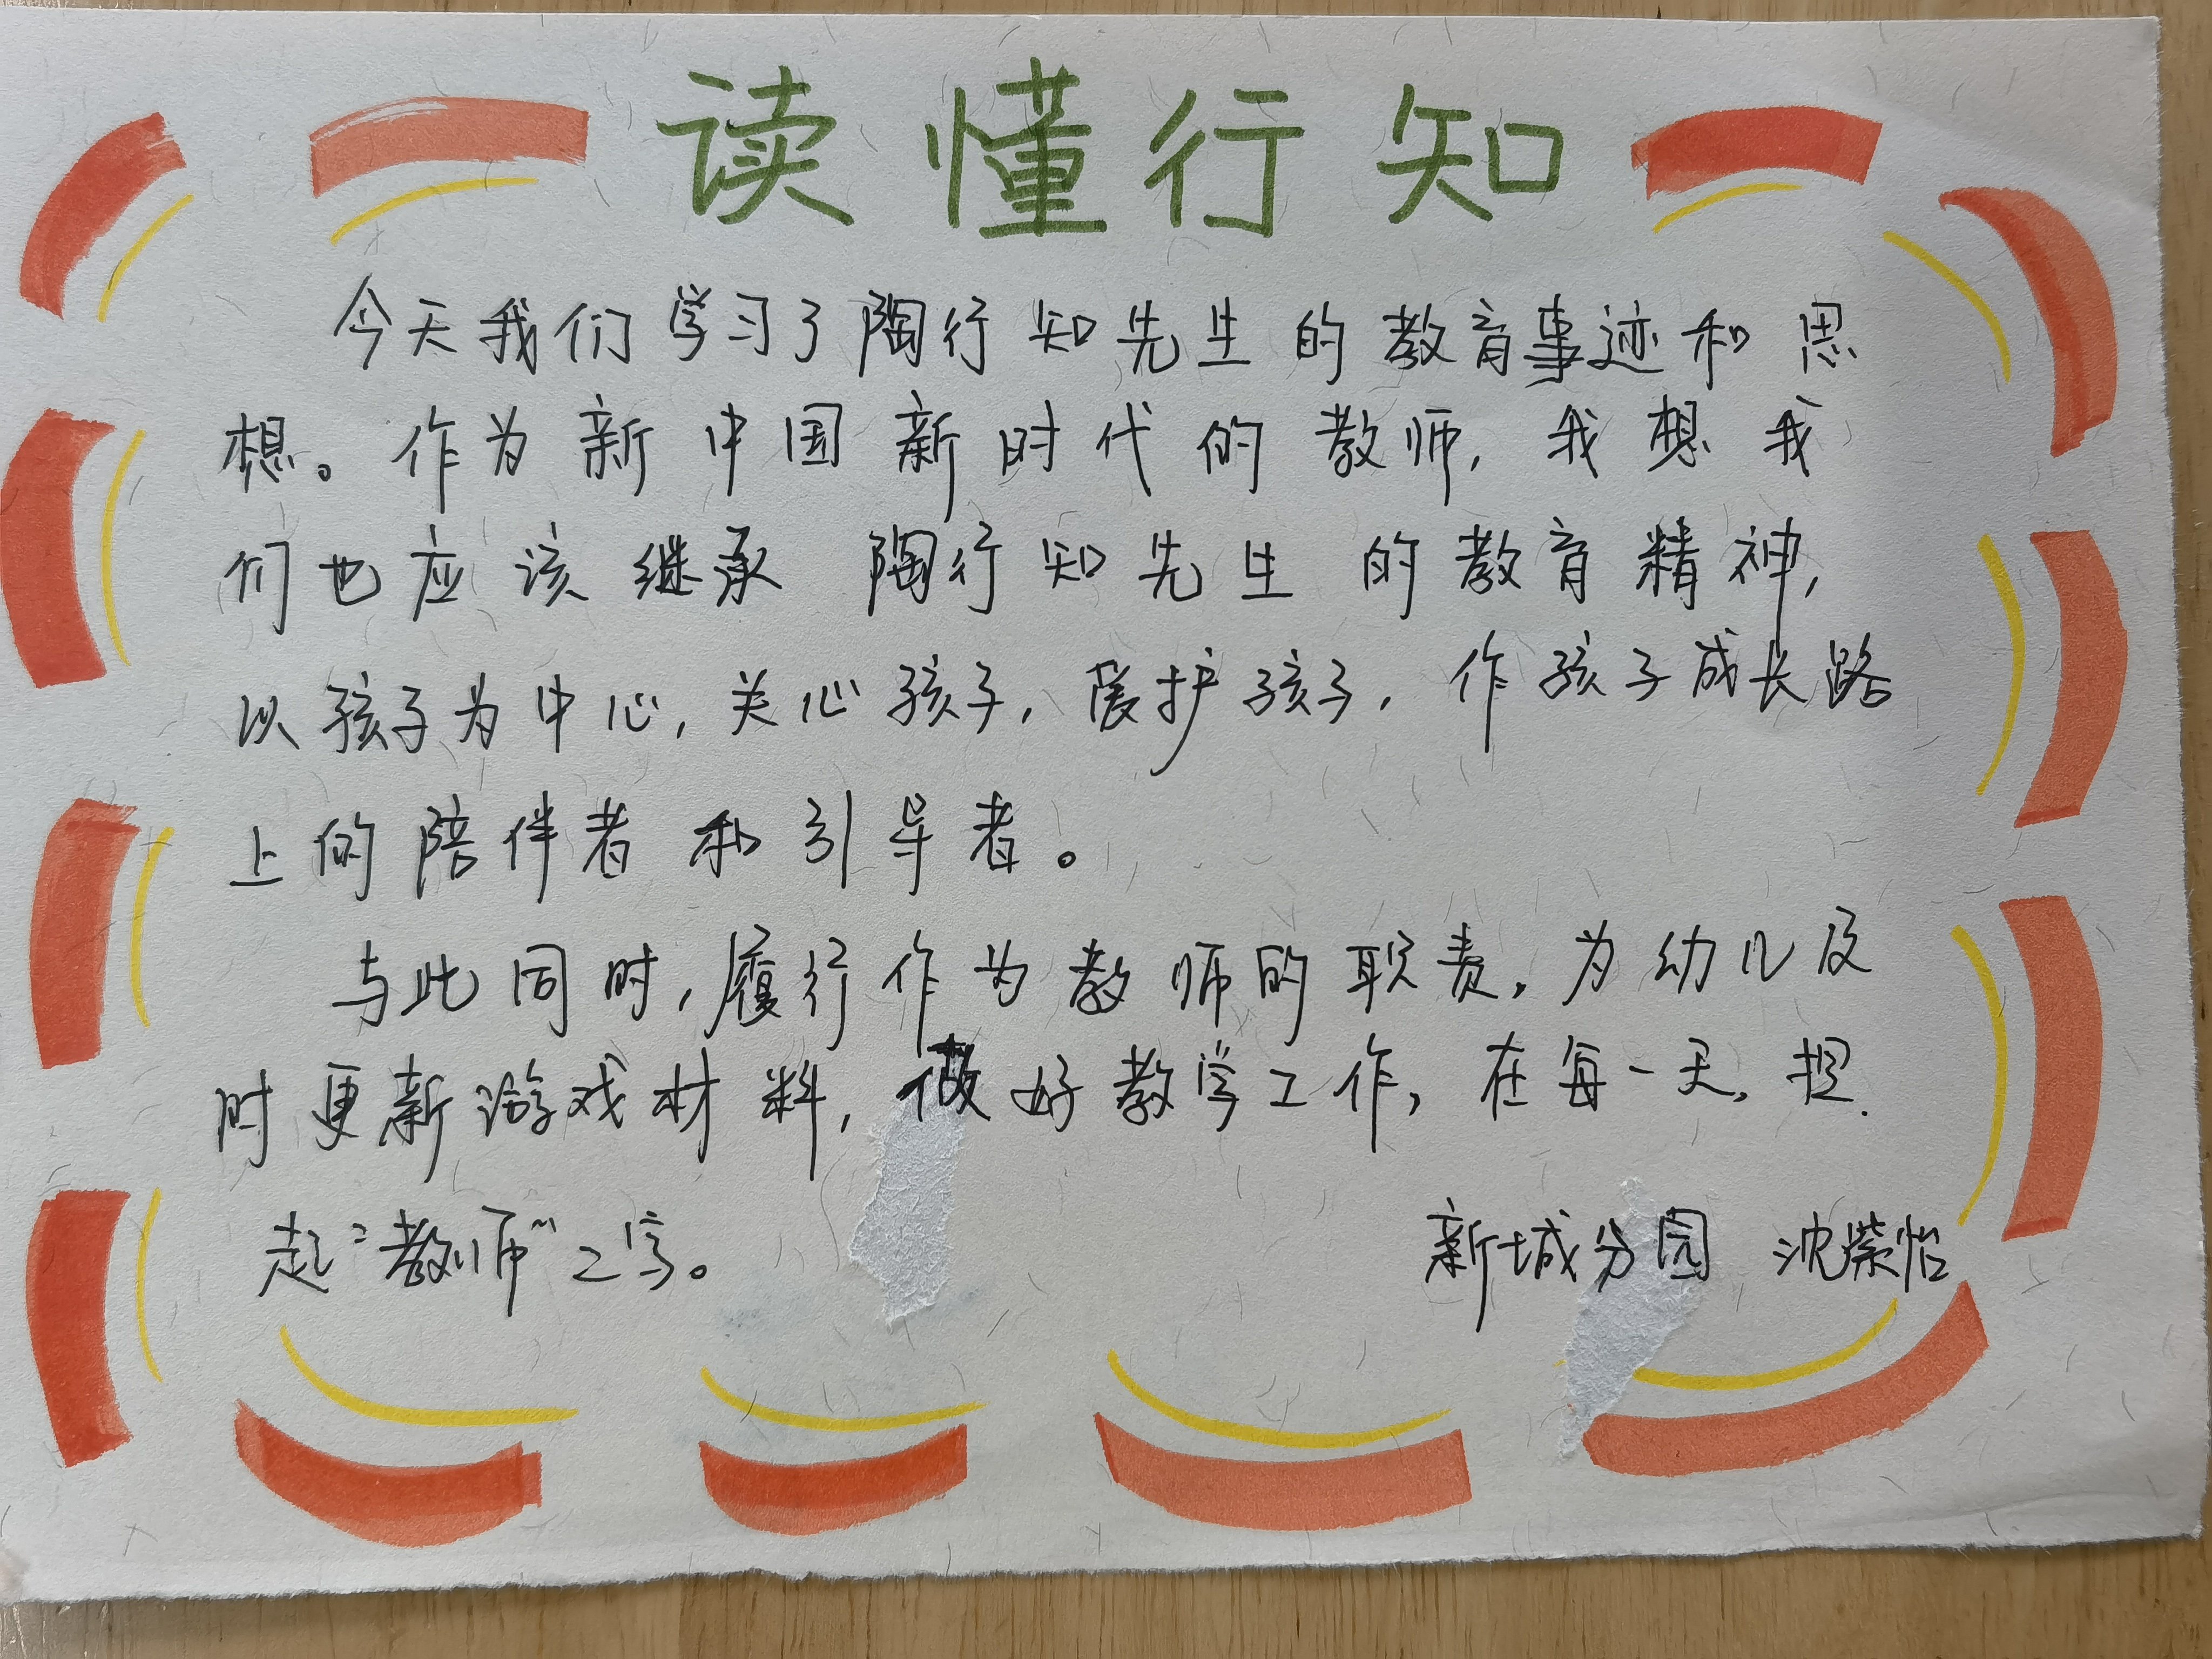 读懂行知
今天我们学习了陶行知先生的教育事迹和思
想。作为新中国新时代的教师,我想我
们也应该继承陶行知先生的教育精神,
以孩子为中心,关心孩子,爱护孩子,作孩子成长路
上的陪伴者和引导者。
与此同时,履行作为教师的职责,为幼儿及
时更新游戏材料,做好教学工作,在每一天,担
起“教师”之字。
新城分园 沈荣怡